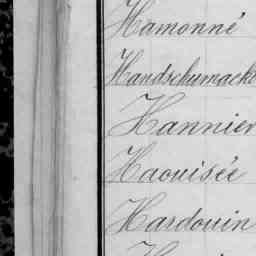 Hamonné
Handschumache
Hannier
Haouisée
Hardouin